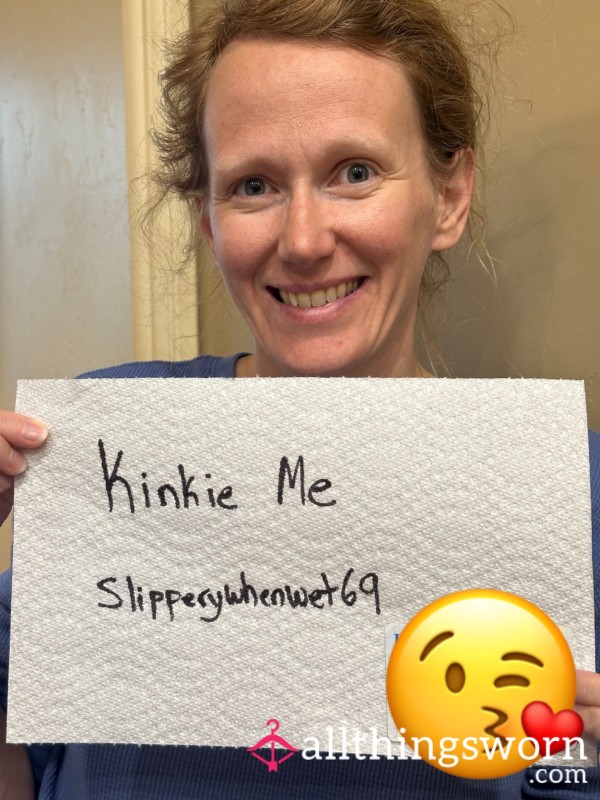 Kinkie Me
Slipperywhenwet69
allthingsworn
.com